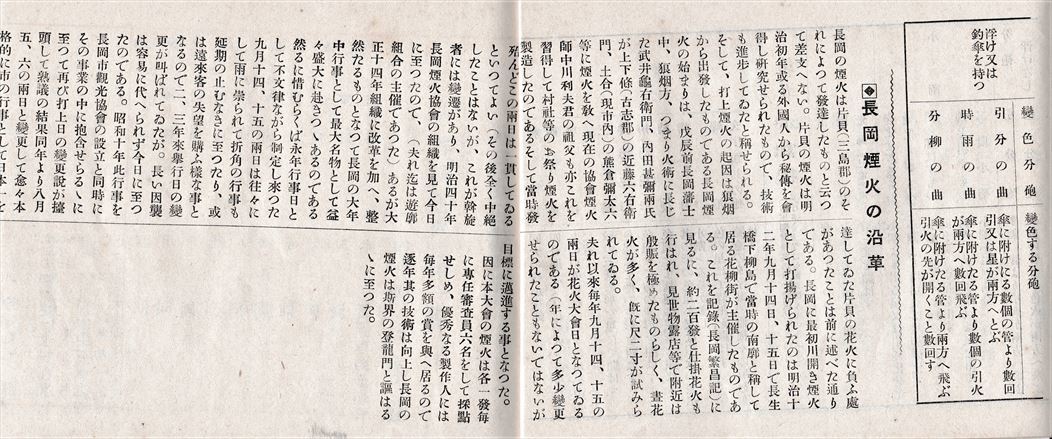 浮け又は
釣傘を持つ
變色分砲
變色する分砲
引分の曲
傘に附けたる數個の管より數回
引又は星が兩方へとぶ
時雨の曲
傘に附けたる管より數個の引火
が兩方へ數回飛ぶ
分柳の曲
傘に附けたる管より兩方へ飛ぶ
引火の先が開くこと數回す
◆長岡煙火の沿革
長岡の煙火は片貝(三島郡)のそ
れによつて發達したものと云つ
て差支へない。片貝の煙火は明
治初年或る外國人から秘傳を會
得し研究せられたもので、技術
も進歩してゐたと稱せられる。
そして、打上煙火の起因は狼烟
から出發したものである長岡煙
火の始まりは、戊辰前長岡藩士
中、狼烟方、つまり火術に長じ
た武井龜右衛門、内田甚彌兩氏
が上下條(古志郡)の近藤六右衛
門、土合(現市内)の熊倉彌太六
等に煙火を敎へ現在の協會煙火
師中川利夫君の祖父も亦これを
習得して村社等のお祭り煙火を
製造したのであるそして當時發
達してゐた片貝の花火に負ふ處
があつたことは前に述べた通り
である。長岡に最初川開き煙火
として打揚げられたのは明治十
二年九月十四日、十五日で長生
橋下柳島で當時の南廓と稱して
居る花柳街が主催したものであ
る。これを記録(長岡繁昌記)に
見るに、約二百發と仕掛花火も
行はれ、見世物露店等で附近は
般賑を極めたものらしく、晝花
火が多く、既に尺二寸が試みら
れてゐる。
夫れ以來毎年九月十四、十五の
兩日が花火大會日となつてゐる
のである(年によつて多少變更
せられたこともないではないが
殆んどこの兩日は一貫してゐる
といつてよい(その後全く中絶
したことはないが、これが斡旋
者には變遷があり、明治四十年
長岡煙火協會の組織を見て今日
に至つたので、(夫れ迄は遊廓
組合の主催であつた)あるが大
正十四年組織に改革を加へ、整
然たるものとなつて長岡の大年
中行事として最大名物として益
々盛大に赴きつゝあるのである
然るに惜むらくは永年行事日と
して不文律ながら制定し來つた
九月十四、十五の兩日は往々に
して雨に祟られて折角の行事も
延期の止むなきに至つたり、或
は遠來客の失望を購ふ樣な事と
なるので二、三年來擧行日の變
更が叫ばれてゐたが。長い因襲
は容易に代へられず今日に至つ
たのである。昭和十年此行事を
長岡市觀光協會の設立と同時に
その事業の中に抱含せらるゝに
至つて再び打上日の變更說が擡
頭して熟議の結果同年より八月
五、六の兩日と變更して愈々本
格的に市の行事として日本一を
目標に邁進する事となつた。
因に本大會の煙火は各一發毎
に專任審査員六名をして採點
せしめ、優秀なる製作人には
毎年多額の賞を與へ居るので
逐年其の技術は向上し長岡の
煙火は斯界の登龍門と謳はる
ゝに至つた。